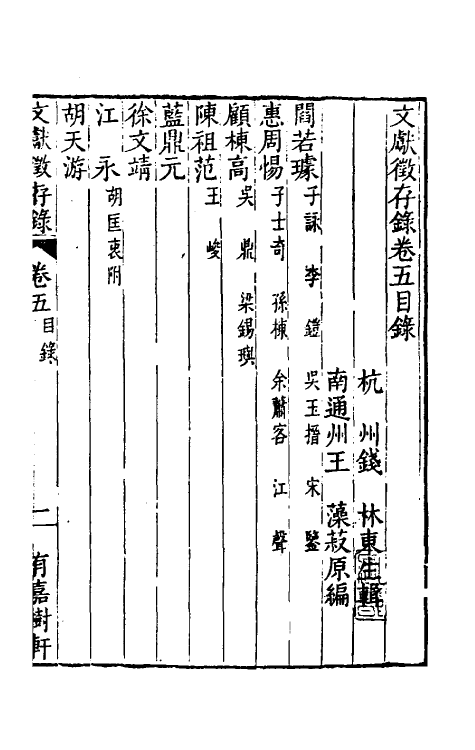 文獻徵存錄卷五目錄
杭州錢林東生輯
南通州王藻菽原編
閻若璩 子詠 李鎧 吳玉搢 宋鑒
惠周惕 子士奇 孫棟 余蕭客 江聲
顧棟高 吳鼎 梁錫璵
陳祖范 王峻
藍鼎元
徐文靖
江永 胡匡衷附
胡天游
文獻徵存錄 卷五目錄 一 有嘉樹軒